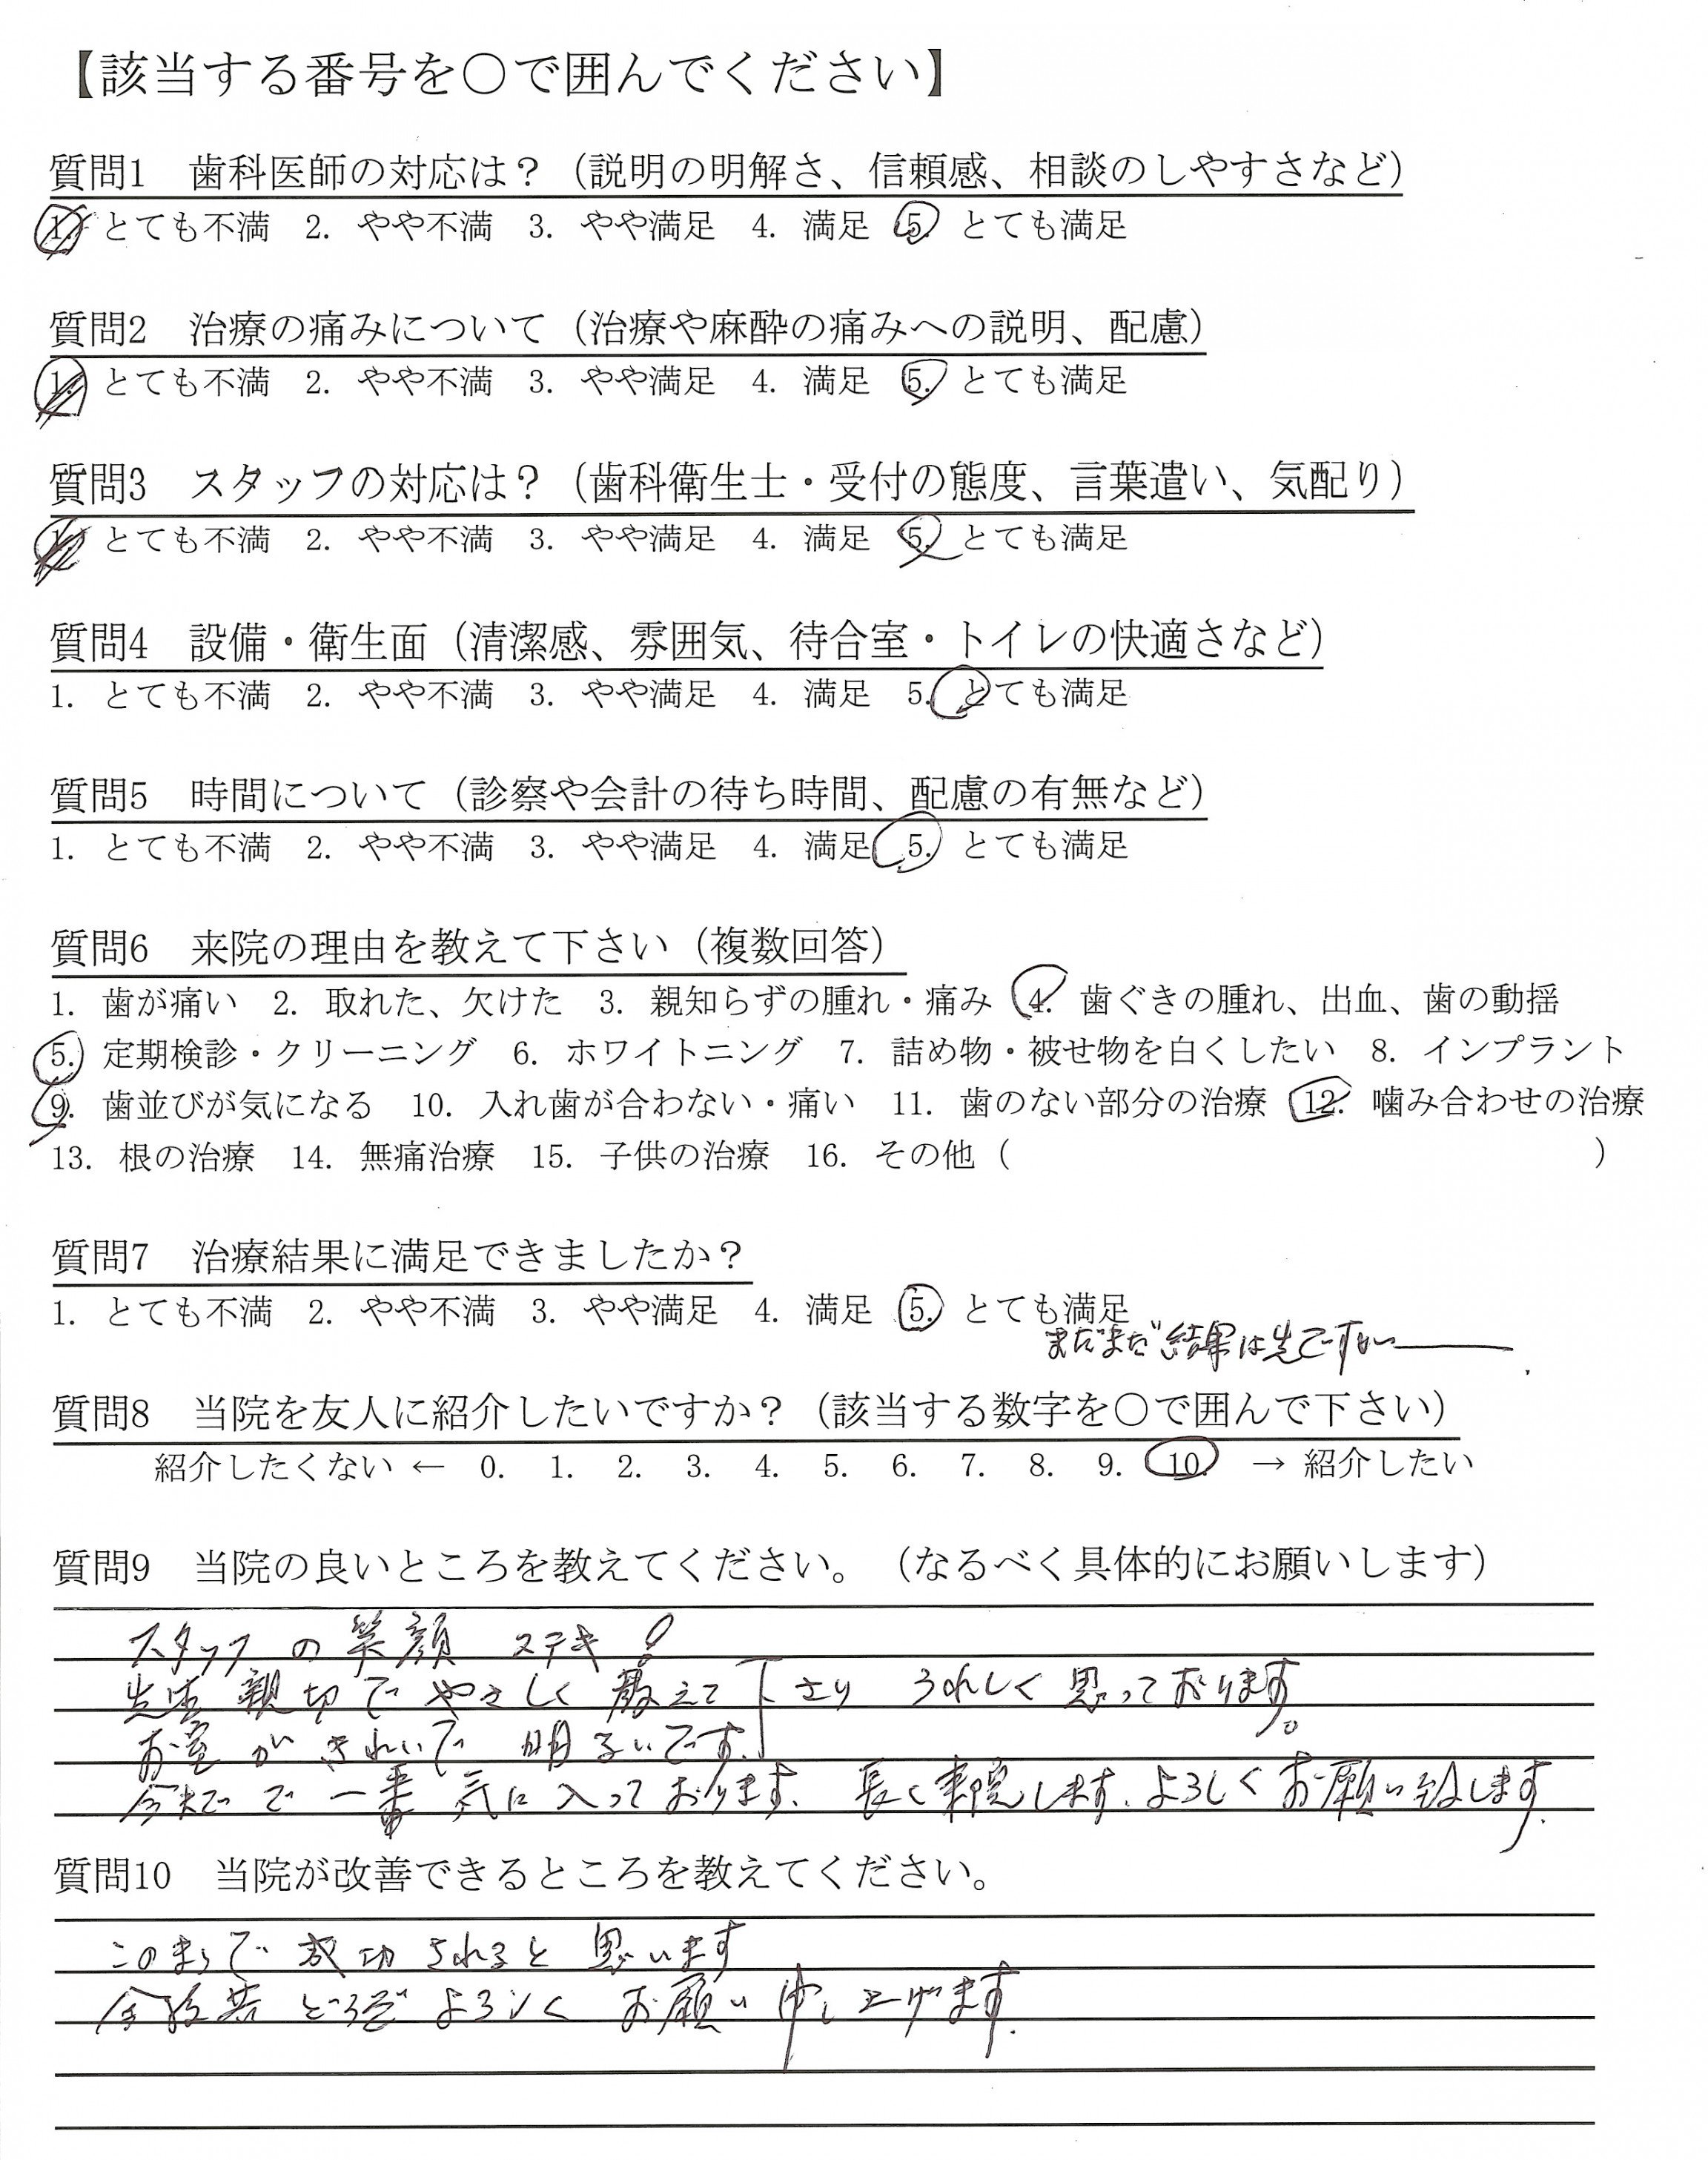 【該当する番号を○で囲んでください】
質問1　歯科医師の対応は？（説明の明解さ、信頼感、相談のしやすさなど）
1. とても不満　2. やや不満　3. やや満足　4. 満足　5. とても満足
質問2　治療の痛みについて（治療や麻酔の痛みへの説明、配慮）
1. とても不満　2. やや不満　3. やや満足　4. 満足　5. とても満足
質問3　スタッフの対応は？（歯科衛生士・受付の態度、言葉遣い、気配り）
1. とても不満　2. やや不満　3. やや満足　4. 満足　5. とても満足
質問4　設備・衛生面（清潔感、雰囲気、待合室・トイレの快適さなど）
1. とても不満　2. やや不満　3. やや満足　4. 満足　5. とても満足
質問5　時間について（診察や会計の待ち時間、配慮の有無など）
1. とても不満　2. やや不満　3. やや満足　4. 満足　5. とても満足
質問6　来院の理由を教えて下さい（複数回答）
1. 歯が痛い　2. 取れた、欠けた　3. 親知らずの腫れ・痛み　4. 歯ぐきの腫れ、出血、歯の動揺
5. 定期検診・クリーニング　6. ホワイトニング　7. 詰め物・被せ物を白くしたい　8. インプラント
9. 歯並びが気になる　10. 入れ歯が合わない・痛い　11. 歯のない部分の治療　12. 噛み合わせの治療
13. 根の治療　14. 無痛治療　15. 子供の治療　16. その他（　　　）
質問7　治療結果に満足できましたか？
1. とても不満　2. やや不満　3. やや満足　4. 満足　5. とても満足
まだまだ結果は先ですが――
質問8　当院を友人に紹介したいですか？（該当する数字を○で囲んで下さい）
紹介したくない ← 0. 1. 2. 3. 4. 5. 6. 7. 8. 9. 10. → 紹介したい
質問9　当院の良いところを教えてください。（なるべく具体的にお願いします）
スタッフの笑顔 ステキ！
先生親切でやさしく教えて下さり うれしく思っております。
お室がきれいで 明るいです.
今までで一番気に入っております. 長く来院します. よろしくお願い致します.
質問10　当院が改善できるところを教えてください。
このまゝで成功されると思います
今後共どうぞよろしくお願い申し上げます.